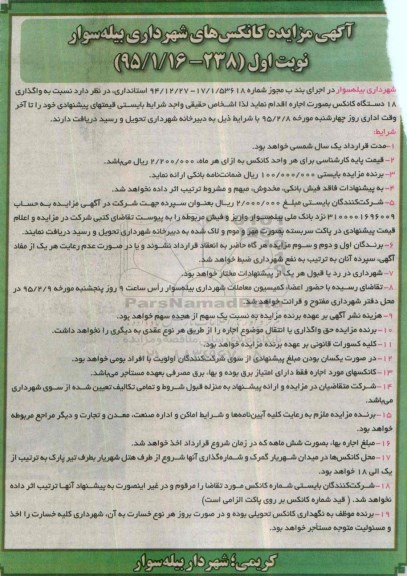 آگهی مزایده کانکس‌های شهرداری بیله‌سوار
نوبت اول (۲۳۸-۹۵/۱/۱۶)
شهرداری بیله‌سوار در اجرای بند ب مجوز شماره ۱۷/۱/۵۳۶۱۸-۹۴/۱۲/۲۷ استانداری، در نظر دارد نسبت به واگذاری
۱۸ دستگاه کانکس بصورت اجاره اقدام نماید لذا اشخاص حقیقی واجد شرایط بایستی قیمتهای پیشنهادی خود را تا آخر
وقت اداری روز چهارشنبه مورخه ۹۵/۲/۸ با شرایط ذیل به دبیرخانه شهرداری تحویل و رسید دریافت دارند.
شرایط:
۱-مدت قرارداد یک سال شمسی خواهد بود.
۲- قیمت پایه کارشناسی برای هر واحد کانکس به ازای هر ماه، ۲/۲۰۰/۰۰۰ ریال می‌باشد.
۳- برنده مزایده بایستی ۱۰۰/۰۰۰/۰۰۰ ریال ضمانت‌نامه بانکی ارائه نماید.
۴- به پیشنهادات فاقد فیش بانکی، مخدوش، مبهم و مشروط ترتیب اثر داده نخواهد شد.
۵- شرکت‌کنندگان بایستی مبلغ ۲/۰۰۰/۰۰۰ ریال بعنوان سپرده جهت شرکت در آگهی مزایده به حساب
۳۱۰۰۰۰۱۶۹۶۰۰۹ نزد بانک ملی بیله‌سوار واریز و فیش مربوطه را به پیوست تقاضای کتبی شرکت در مزایده و اعلام
قیمت پیشنهادی در پاکت سربسته بصورت مهر و موم و لاک شده به دبیرخانه شهرداری تحویل و رسید دریافت نمایند.
۶- برندگان اول و دوم و سوم مزایده هر گاه حاضر به انعقاد قرارداد نشوند و یا در صورت عدم رعایت هر یک از مفاد
آگهی، سپرده آنان به ترتیب به نفع شهرداری ضبط خواهد شد.
۷- شهرداری در رد یا قبول هر یک از پیشنهادات مختار خواهد بود.
۸- تقاضای رسیده با حضور اعضاء کمیسیون معاملات شهرداری بیله‌سوار رأس ساعت ۹ روز پنجشنبه مورخه ۹۵/۲/۹ در
محل دفتر شهرداری مفتوح و قرائت خواهد شد.
۹- هزینه نشر آگهی بر عهده برنده مزایده به نسبت یک سهم از هجده سهم خواهد بود.
۱۰- برنده مزایده حق واگذاری یا انتقال موضوع اجاره را از طریق هر نوع عقدی به دیگری را نخواهد داشت.
۱۱- کلیه کسورات قانونی بر عهده برنده مزایده خواهد بود.
۱۲- در صورت یکسان بودن مبلغ پیشنهادی از سوی شرکت‌کنندگان اولویت با افراد بومی خواهد بود.
۱۳- کانکسهای مورد اجاره فقط دارای امتیاز برق بوده و بها، برق مصرفی بعهده مستأجر می‌باشد.
۱۴- شرکت متقاضیان در مزایده و ارائه پیشنهاد به منزله قبول شروط و تمامی تکالیف تعیین شده از سوی شهرداری
می‌باشد.
۱۵- برنده مزایده ملزم به رعایت کلیه آیین‌نامه‌ها و شرایط اماکن و اداره صنعت، معدن و تجارت و دیگر مراجع مربوطه
خواهد بود.
۱۶- مبلغ اجاره بها، بصورت شش ماهه که در زمان شروع قرارداد اخذ خواهد شد.
۱۷- محل کانکس‌ها در میدان شهریار گمرک و شماره‌گذاری آنها شروع از طرف هتل شهریار بطرف تیر پارک به ترتیب از
یک الی ۱۸ خواهد بود.
۱۸- شرکت‌کنندگان بایستی شماره کانکس مورد تقاضا را مرقوم و در غیر اینصورت به پیشنهاد آنها ترتیب اثر داده
نخواهد شد. ( قید شماره کانکس بر روی پاکت الزامی است)
۱۹- برنده موظف به نگهداری کانکس تحویلی بوده و در صورت بروز هر نوع خسارت به آن، شهرداری کلیه خسارت را اخذ
و مسئولیت متوجه مستأجر خواهد بود.
کریمی؛ شهردار بیله‌سوار